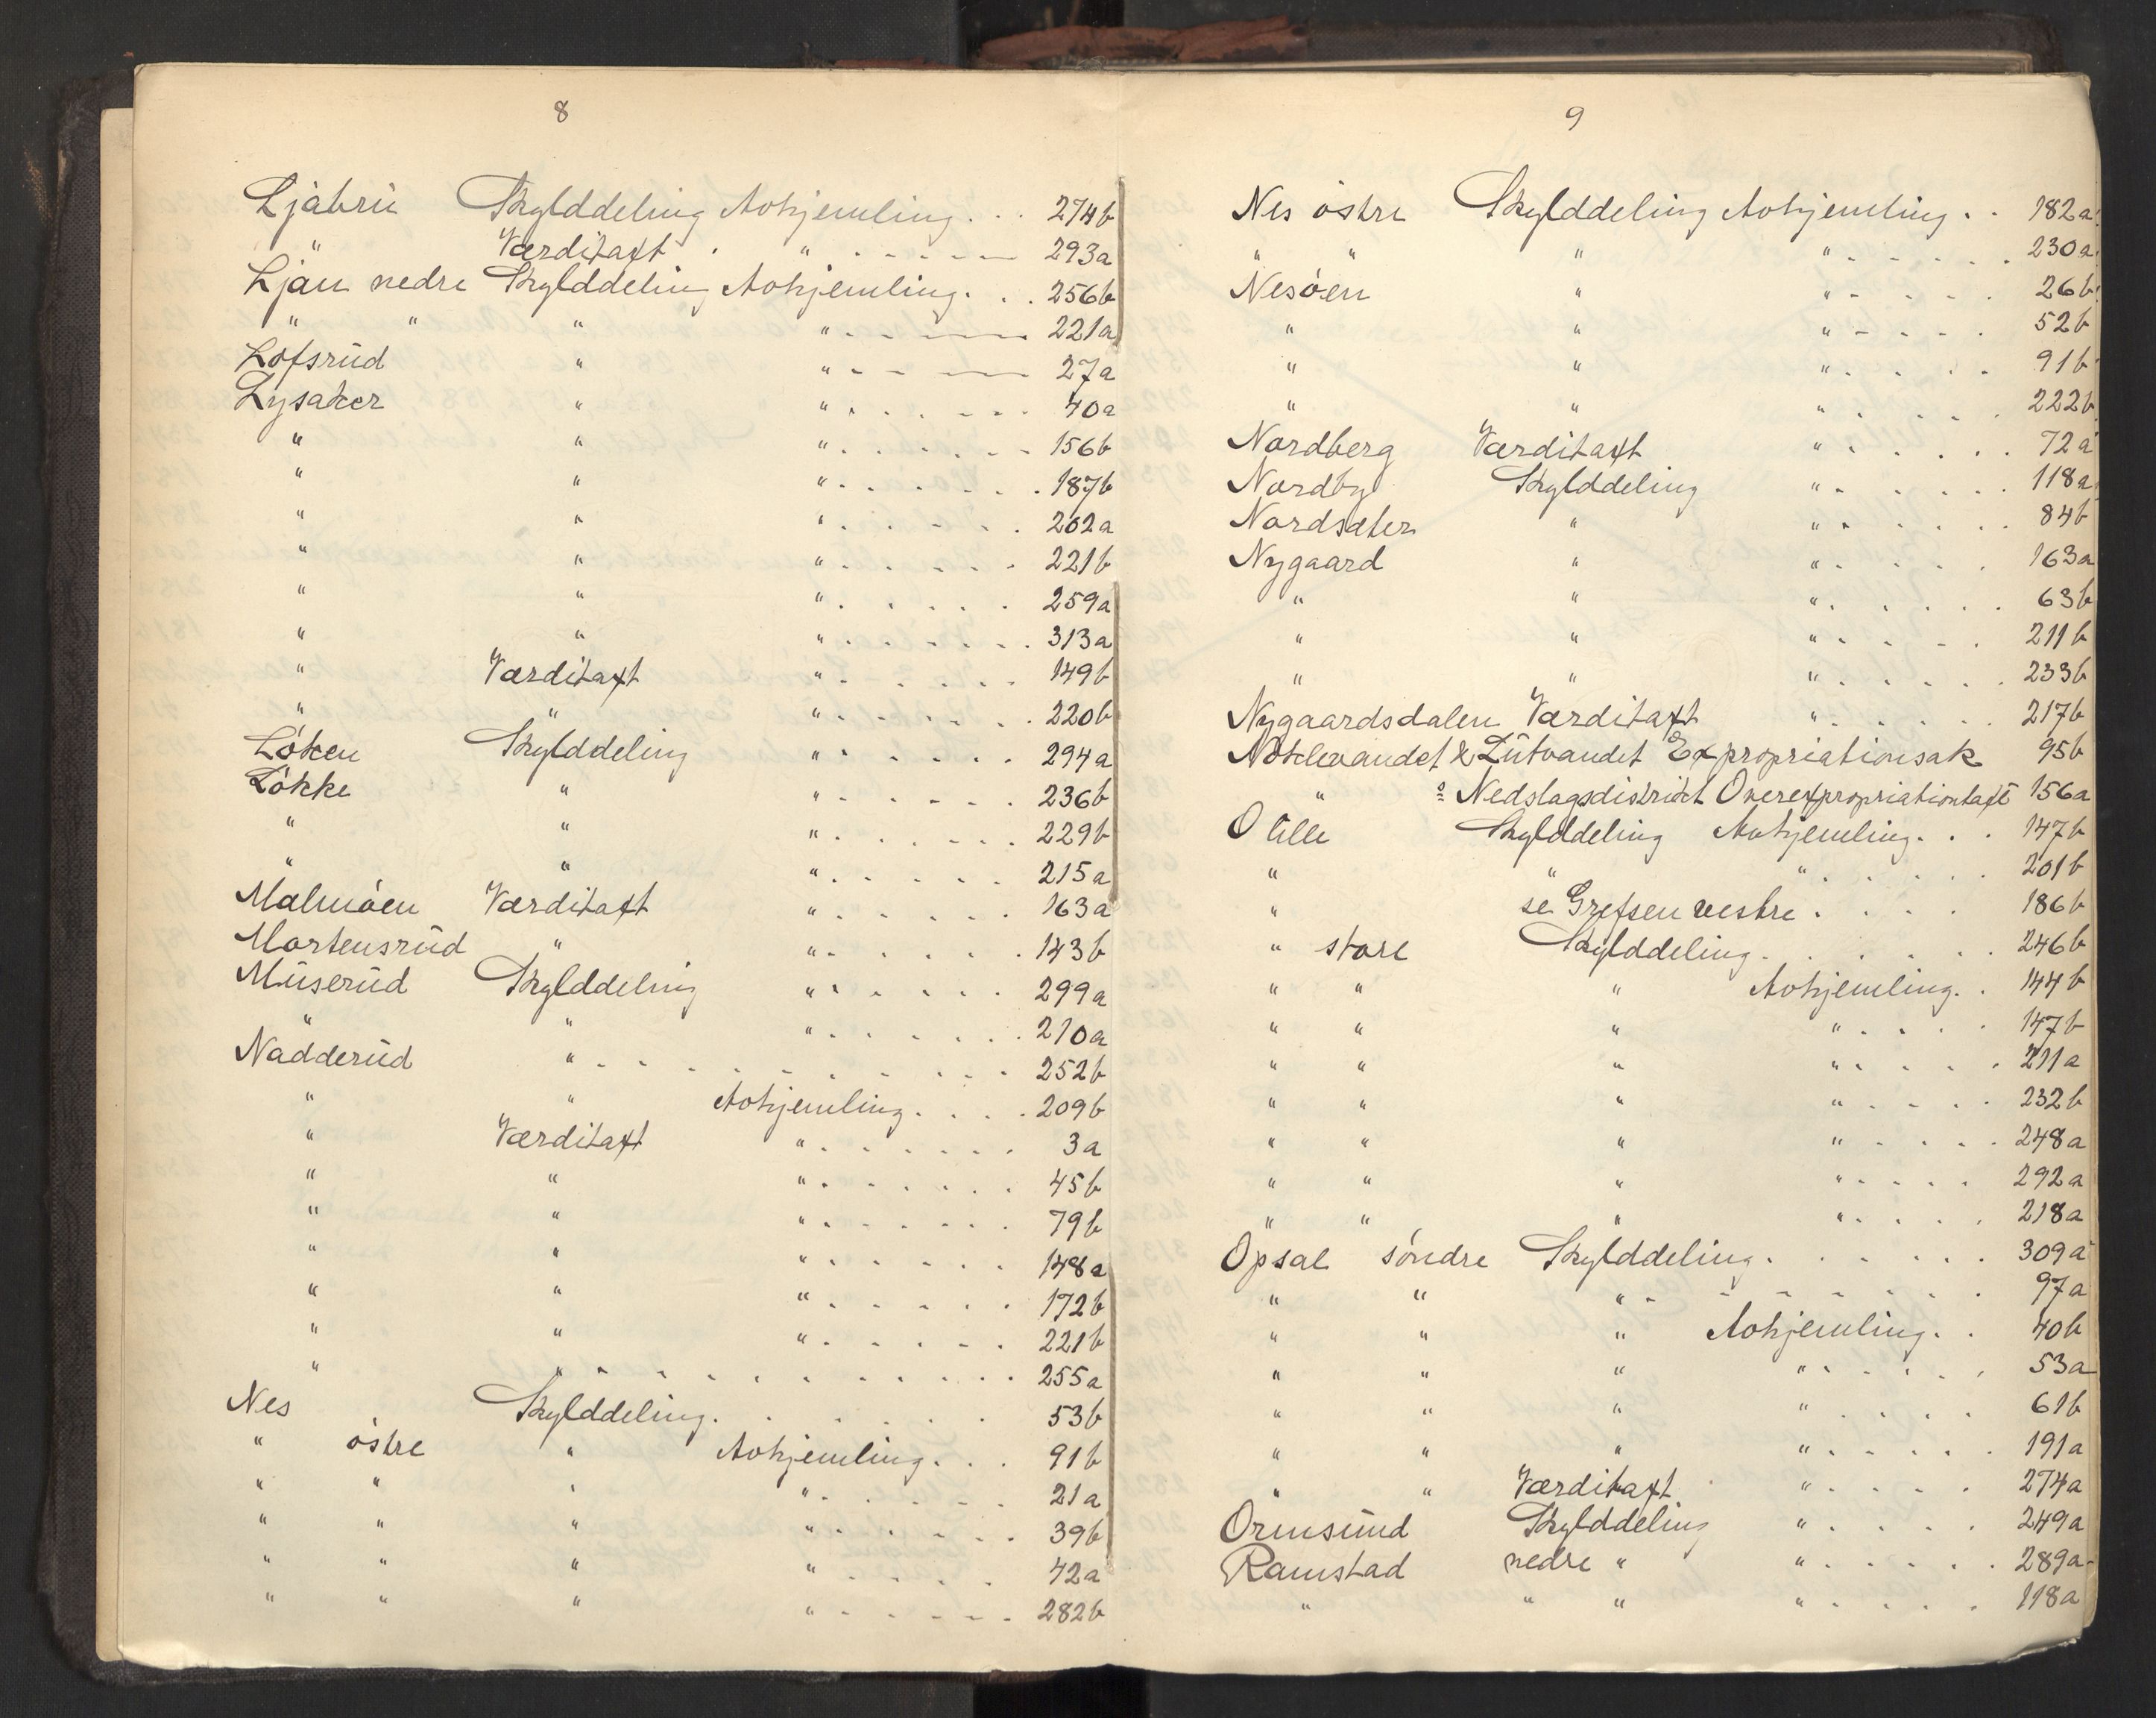 8
Ljabru Skylddeling Avhjemling. . . 274b
" Værditaxt . " . . . . . 293a
Ljan nedre Skylddeling Avhjemling. . . 256b
" " " " . . . . 221a
Lofsrud " " . . . . 27a
Lysaker " " . . . . . . 40a
" " " . . . . . . 156b
" " " . . . . . . 187b
" " " . . . . . . 202a
" " " . . . . . . 221b
" " " . . . . . . 259a
" " " . . . . . . 313a
" Værditaxt " . . . . . 149b
" " " . . . . . . 220b
Löken Skylddeling " . . . . . 294a
Lökke " " . . . . . . 236b
" " " . . . . . . 229b
" " " . . . . . 215a
Malmöen Værditaxt " . . . . . . 163a
Mortensrud " " . . . . . 143b
Muserud Skylddeling " . . . . . 299a
" " " . . . . . . 210a
Nadderud " . . . . . . . . . . 252b
" " Avhjemling. . . . 209b
" Værditaxt " . . . . . . 3a
" " " . . . . . . 45b
" " " . . . . . . 79b
" " " . . . . . 148a
" " " . . . . . 172b
" " " . . . . . 221b
" " . . . . . . . . . . 255a
Nes Skylddeling. . . . . . . 53b
" östre " Avhjemling. . . 91b
" " " " . . . . . 21a
" " " " . . . . . . 39b
" " " " . . . . . 42a
" " " " . . . . . . 282b
9
Nes östre Skylddeling Avhjemling. . 182a
" " " " . . . . . . 230a
Nesöen " " . . . . 26b
" " " . . . . . 52b
" " " . . . . . 91b
" " " . . . . . 222b
Nordberg Værditaxt " . . . . . 72a
Nordby Skylddeling " . . . . . 118a
Nordsæter " " . . . . . 84b
Nygaard " " . . . . . 163a
" " " . . . . . . 63b
" " " . . . . . 211b
" " " . . . . . . 233b
Nygaardsdalen Værditaxt " . . . . . 217b
Nöklevandet & Lutvandet Expropriationsak 95b
" s Nedslagsdistrikt Overexpropriationtaxt 156a
O lille Skylddeling Avhjemling. . . 147b
" " " . . . . . 201b
" se Grefsen vestre . . . . 186b
" store Skylddeling . . . . . . . 246b
" " " Avhjemling. . 144b
" " " " . . . . . 147b
" " " " . . . . . 211a
" " " " . . . . . 232b
" " " " . . . . . 248a
" " " " . . . . . 292a
" " " " . . . . . 218a
Opsal söndre Skylddeling. . . . . . 309a
" " " . . . . . . . . 97a
" " " Avhjemling. . 40b
" " " " . . . . . 53a
" " " " . . . . 61b
" " " " . . . . . 191a
" " Værditaxt " . . . . 274a
Ormsund Skylddeling " . . . . 249a
Ramstad nedre " " . . . . . 289a
" " " " . . . . . 118a